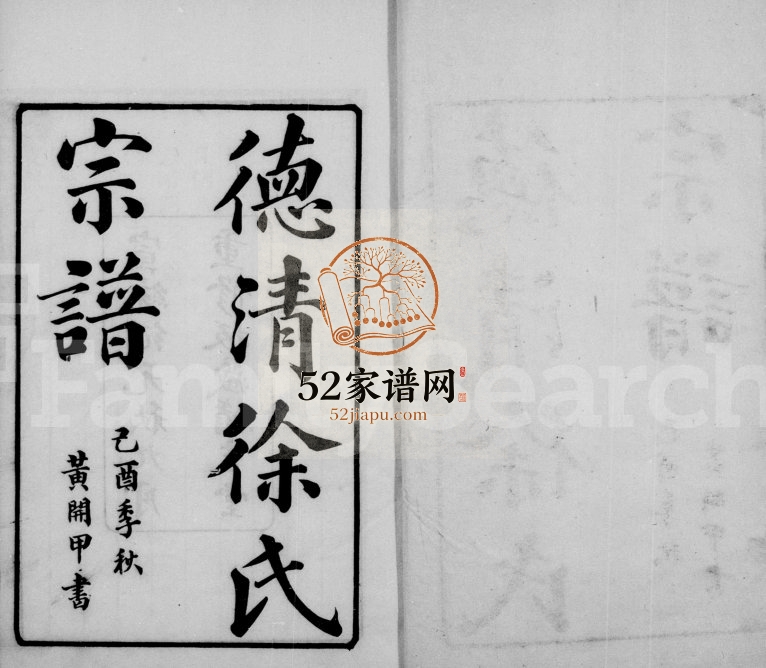 德清徐氏
宗譜
己酉季秋
黃開甲書
52家谱网
52jiapu.com
FamilySearch